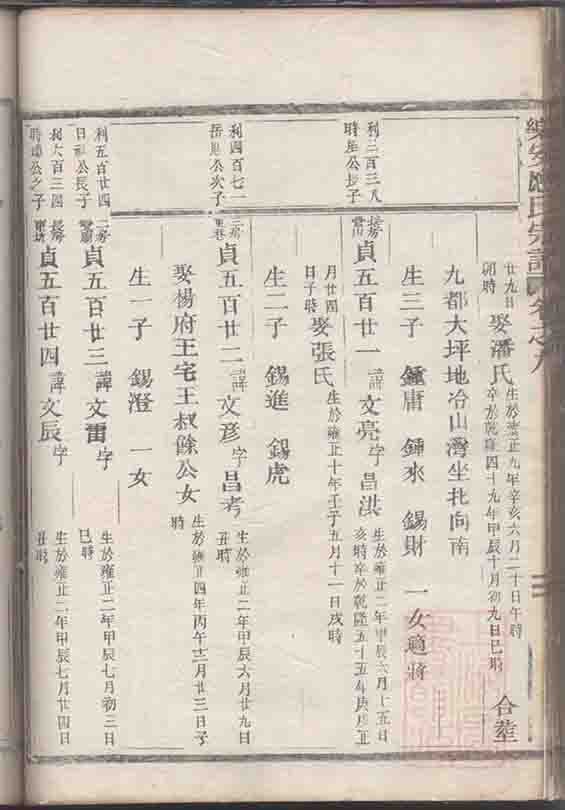 廿九日
卯時
娶潘氏
生於雍正九年辛亥六月二十日午時
卒於乾隆四十九年甲辰十月初九日巳時
合塟
九都大坪地冷山灣坐北向南
生三子 鍾庸 鍾來 錫財 一女適蔣
利三百三八
時 公長子
長房
貞五百廿一
諱文亮字昌洪
生於雍正二年甲辰六月十五日
亥時卒於乾隆五十五年庚戌正
月廿四
日子時
娶張氏
生於雍正十年壬子五月十一日戌時
生二子 錫進 錫虎
利四百七一
公次子
三房
貞五百廿二
諱文彥字昌考
生於雍正二年甲辰六月廿九日
丑時
娶楊府王宅王叔餘公女
生於雍正四年丙午十二月廿三日子
時
生一子 錫澄 一女
利五百廿四
日 公長子
二房
貞五百廿三
諱文雷字
生於雍正二年甲辰七月初三日
巳時
利六百三四
時 公之子
長房
貞五百廿四
諱文辰字
生於雍正二年甲辰七月廿四日
丑時